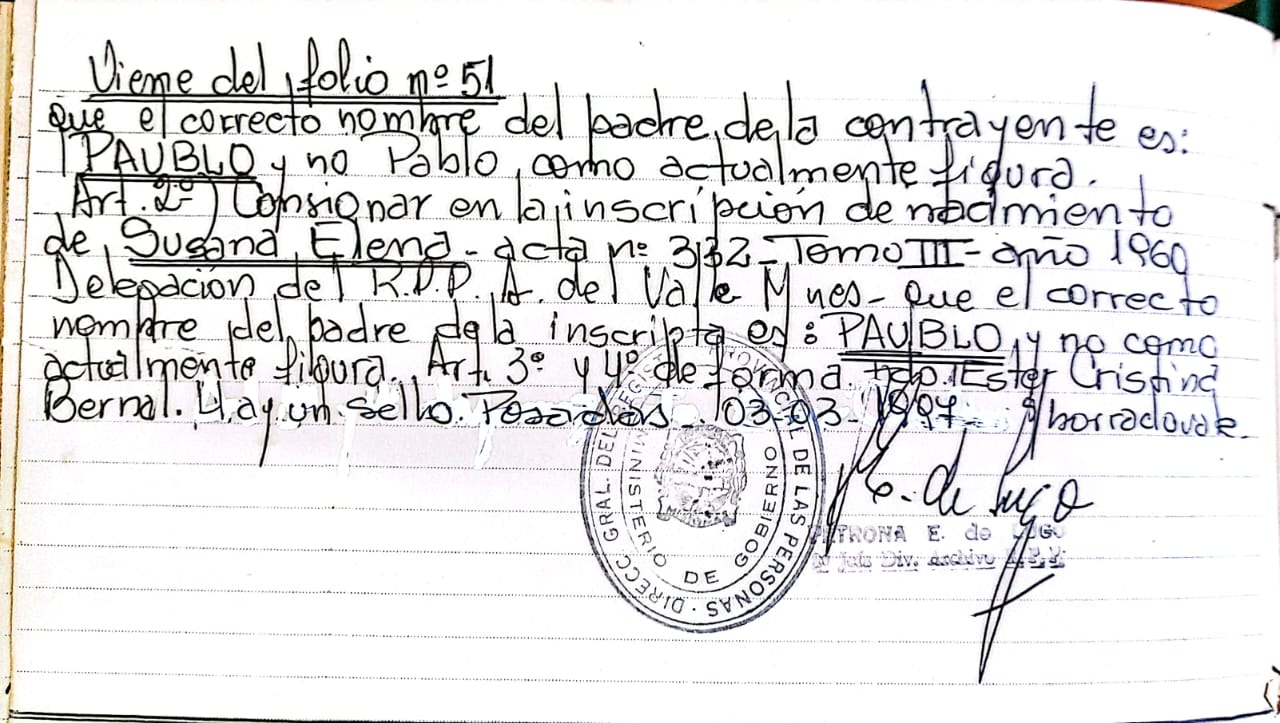 Viene del folio nº 51
que el correcto nombre del padre de la contrayente es:
PAUBLO y no Pablo, como actualmente figura.
Art. 2º) Consignar en la inscripción de nacimiento
de Susana Elena - acta nº 332 - Tomo III - año 1960
Delegación del R.P.P. A. del Valle Mnes - que el correcto
nombre del padre de la inscripta es: PAUBLO y no como
actualmente figura. Art. 3º y 4º de forma. fdo. Ester Cristina
Bernal. Hay un sello. Posadas 03-03-1997.
E. de Lugo
PETRONA E. de LUGO
Div. Archivo
DIRECC GRAL. DEL REG. PROVINCIAL DE LAS PERSONAS
MINISTERIO DE GOBIERNO